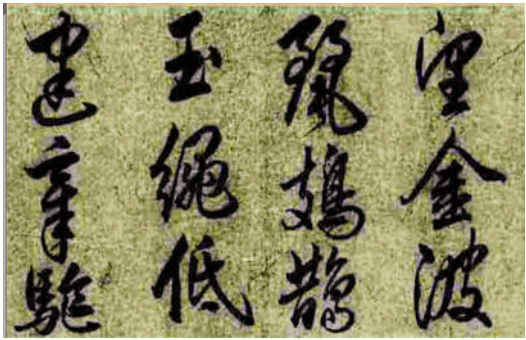 望金波
麗鳷鵲
玉繩低
建章駈